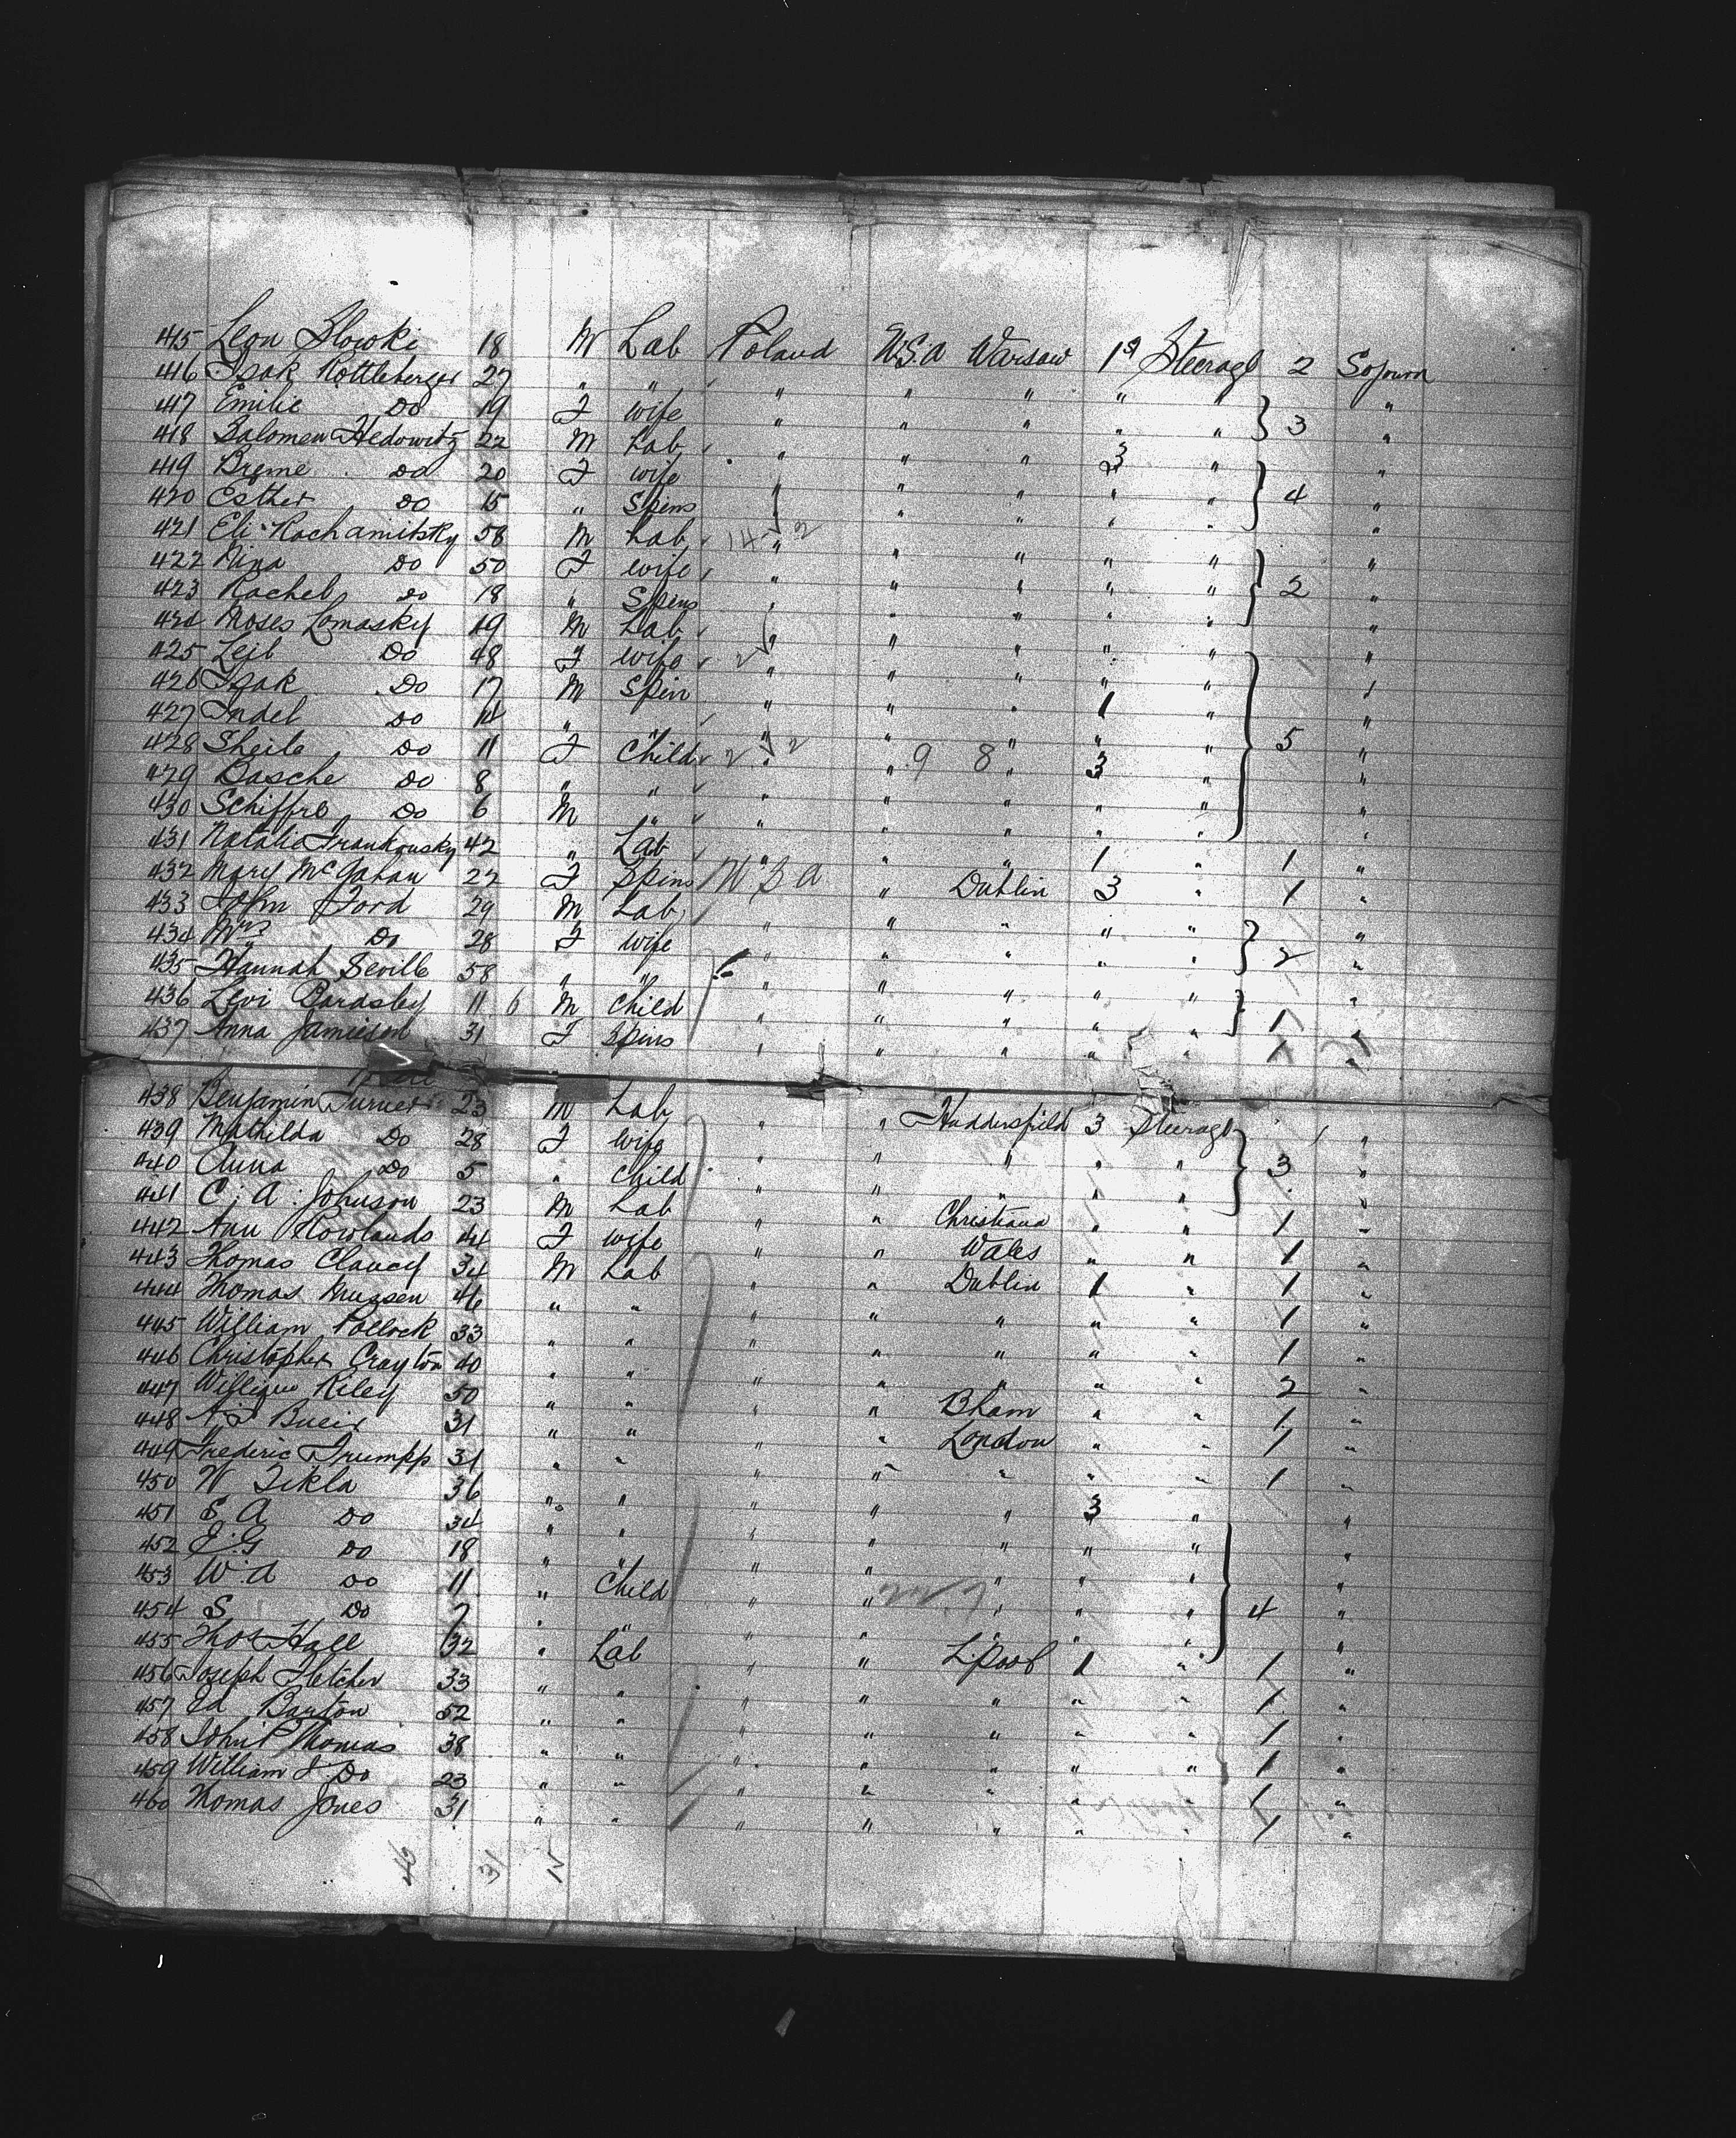 415 Leon Slowki 18 M Lab Poland USA Warsaw 1st Steerage 2 Sojourn
416 Isak Kottleberger 27 " " " " " " " "
417 Emilie Do 19 F wife " " " " " 3 "
418 Salomen Hedowitz 22 M Lab " " " 3 " "
419 Breme Do 20 F wife " " " " " 4 "
420 Esther Do 15 " Spins " " " " " "
421 Eli Rachamitsky 58 M Lab 14 2 " " " " " "
422 Nina Do 50 F wife " " " " " 2 "
423 Rachel Do 18 " Spins " " " " " "
424 Moses Lomasky 49 M Lab " " " " " "
425 Leib Do 48 F wife 2 " " " " " "
426 Isak Do 17 M Spin " " " 1 " "
427 Indel Do 14 " " " " " " " 5 "
428 Sheile Do 11 F Child 2 2 " " 9 8 " 3 " "
429 Basche Do 8 " " " " " " " "
430 Schiffre Do 6 M " " " " " " "
431 Natalie Frankousky 42 " Lab " " " 1 " 1 "
432 Mary McGahan 22 F Spins USA " Dublin 3 " 1 "
433 John Ford 29 M Lab " " " " " "
434 Mrs Do 28 F wife " " " " " 2 "
435 Hannah Seville 58 " " " " " " " "
436 Levi Bardsley 11 6 M Child " " " " " 1 "
437 Anna Jamieson 31 F Spins " " " " " 1 "
438 Benjamin Turner 23 M Lab " " Huddersfield 3 Steerage "
439 Mathilda Do 28 F wife " " " " " 3 "
440 Anna Do 5 " Child " " " " " "
441 C. A. Johnson 23 M Lab " " Christiana " " 1 "
442 Ann Rowlands 44 F wife " " Wales " " 1 "
443 Thomas Clancy 34 M Lab " " Dublin 1 " 1 "
444 Thomas 46 " " " " " " " 1 "
445 William Pollock 33 " " " " " " " 1 "
446 Christopher Crayton 40 " " " " " " " 2 "
447 William Riley 50 " " " " Bham " " 1 "
448 31 " " " " London " " 1 "
449 Frederic Trumpp 31 " " " " " " " 1 "
450 W Tikla 36 " " " " " 3 "
451 E A Do 34 " " " " " " " "
452 J. G Do 18 " " " " " " " "
453 W. A Do 11 " Child " " " " " 4 "
454 S Do 7 " " " " " " " "
455 Thos Hall 32 " Lab " " L.pool 1 " 1 "
456 Joseph Fletcher 33 " " " " " " " 1 "
457 Ed Barton 52 " " " " " " " 1 "
458 John P Thomas 38 " " " " " " " 1 "
459 William J Do 23 " " " " " " " 1 "
460 Thomas Jones 31 " " " " " " " 1 "
46 31 15